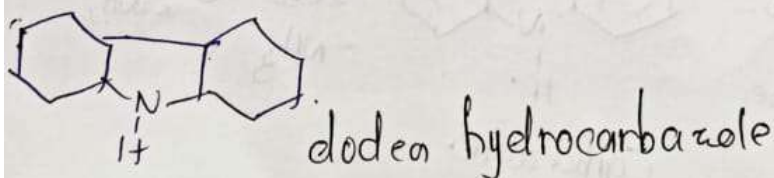 N
H
dodea hydrocarbazole